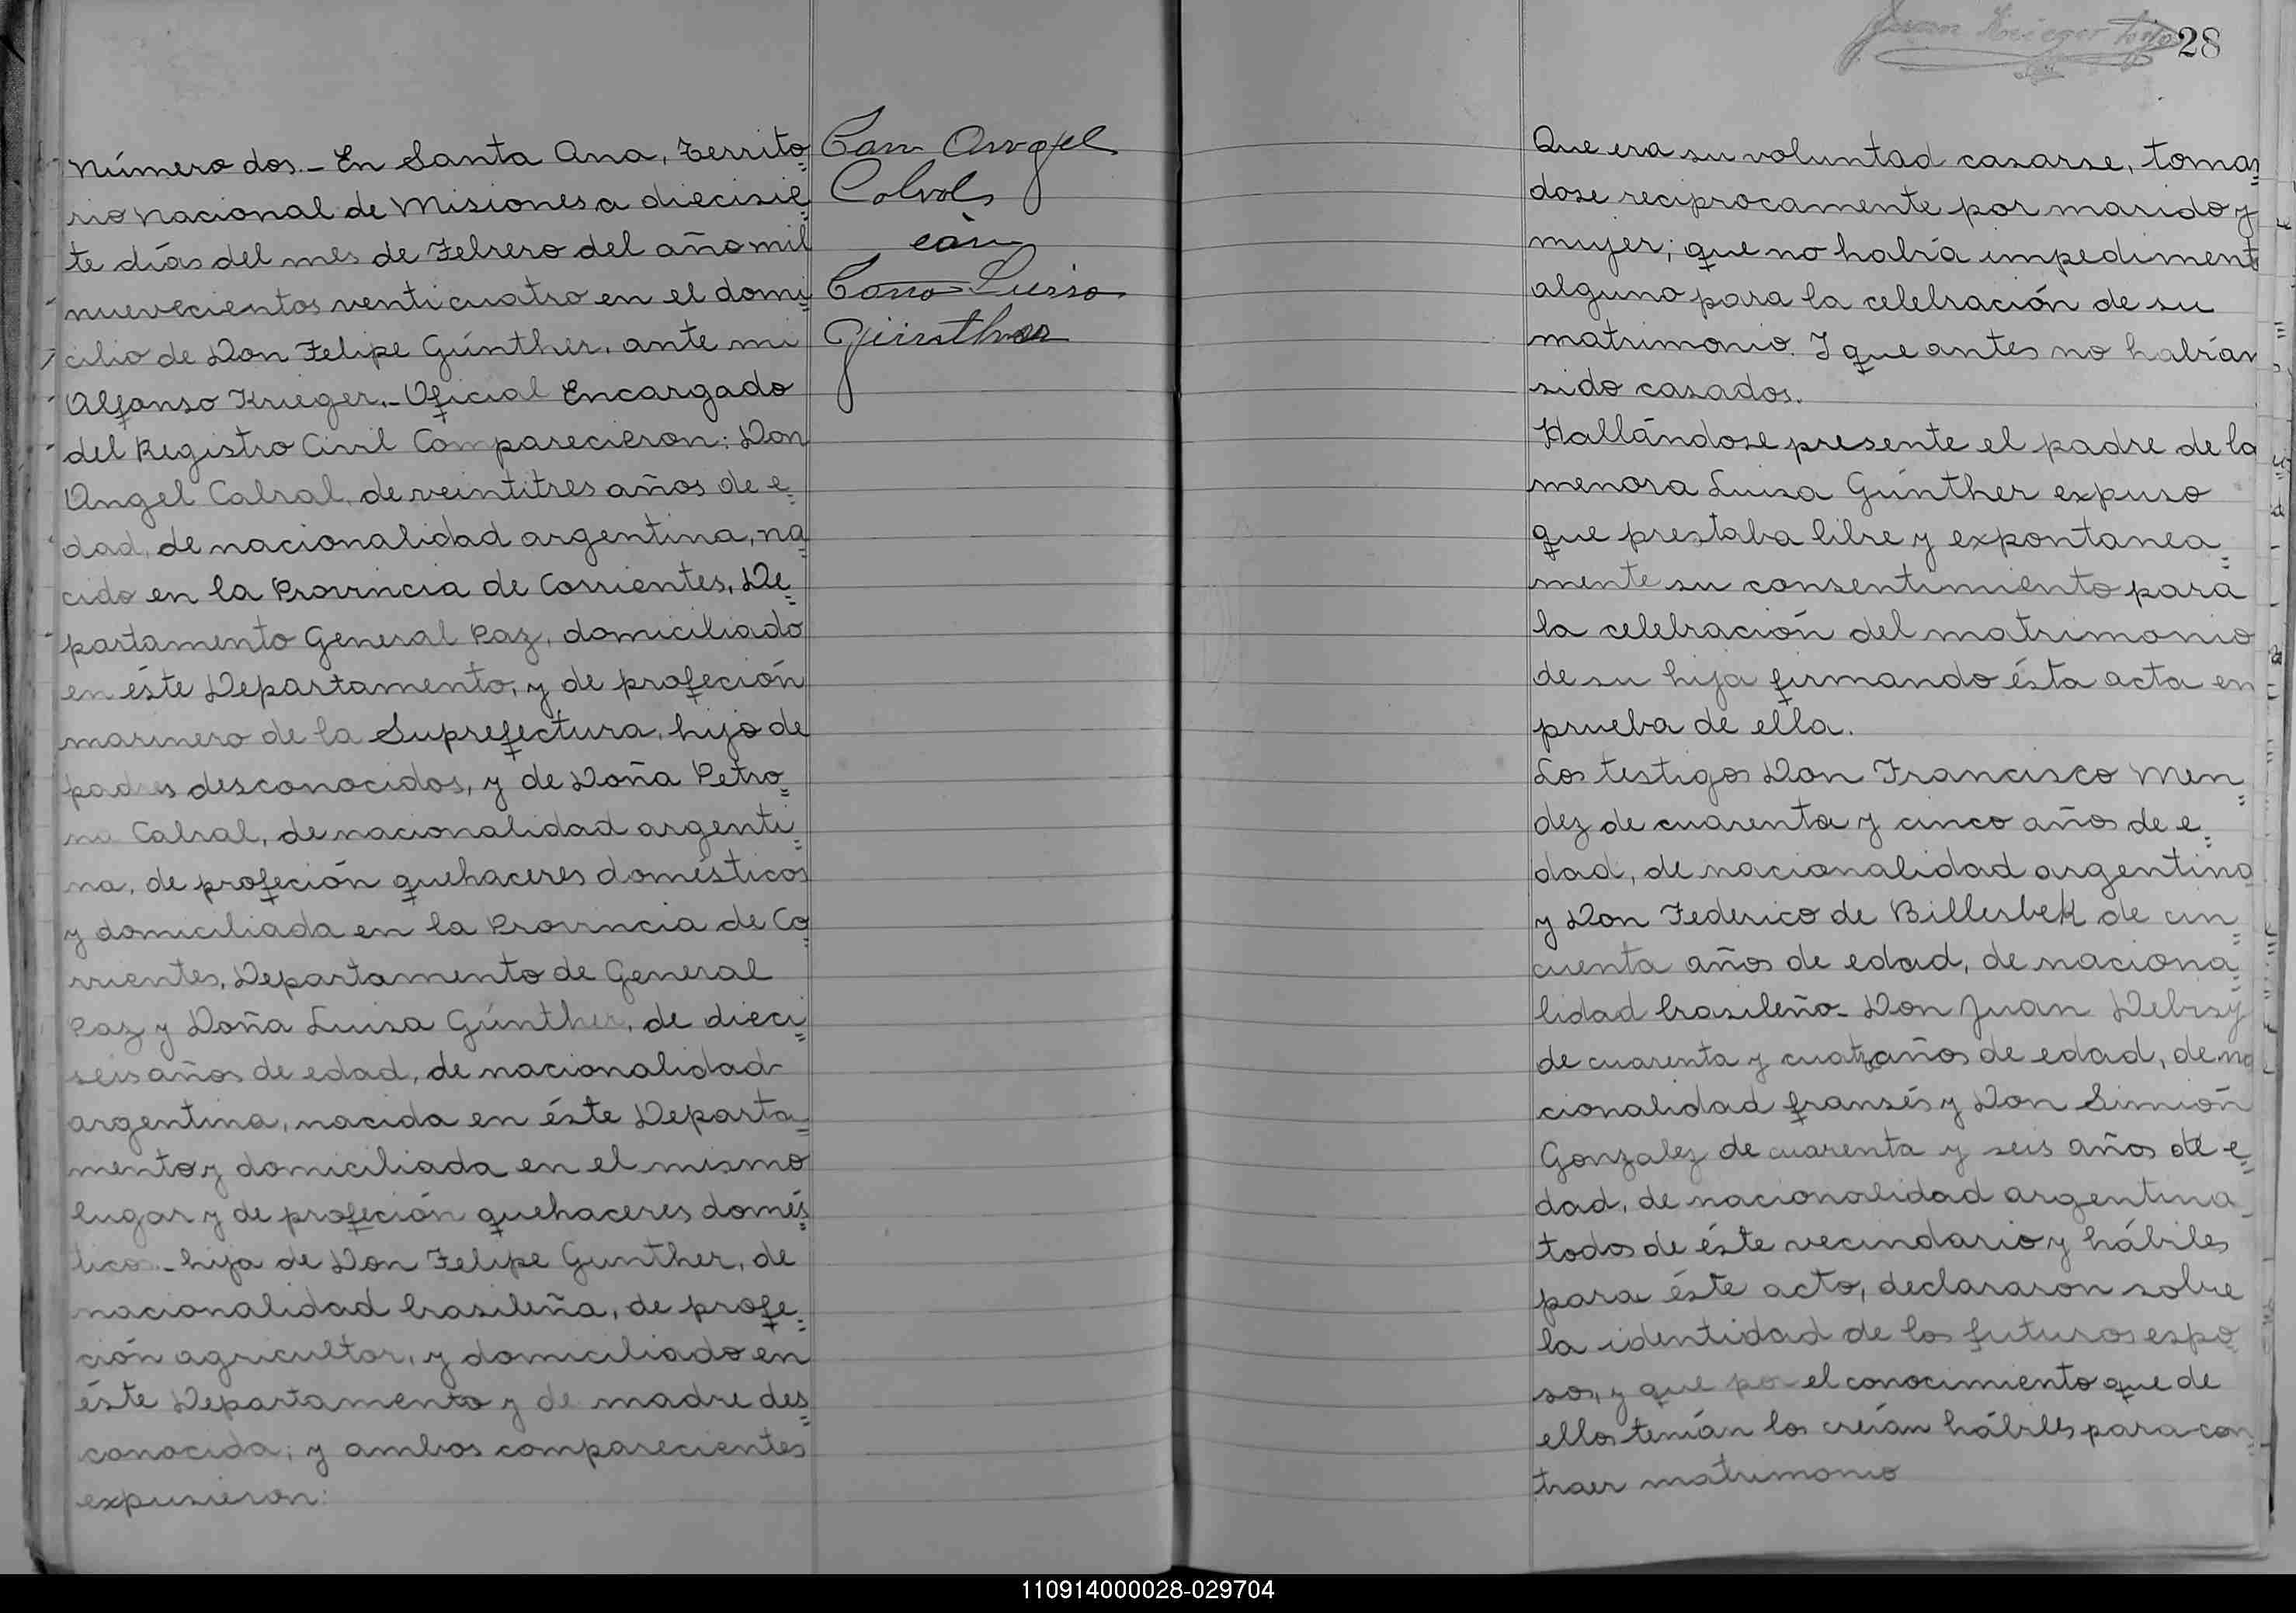 Número dos.- En Santa Ana, Territo=
rio Nacional de Misiones a diecisie=
te días del mes de Febrero del año mil
nuevecientos venticuatro en el domi=
cilio de Don Felipe Günther, ante mi
Alfonso Krieger.- Oficial Encargado
del Registro Civil Comparecieron: Don
Angel Cabral, de veintitres años de e=
dad, de nacionalidad argentina, na=
cido en la Provincia de Corrientes, De=
partamento General Paz, domiciliado
en éste Departamento, y de profeción
marinero de la Suprefectura, hijo de
padres desconocidos, y de Doña Petro=
na Cabral, de nacionalidad argenti=
na, de profeción quehaceres domésticos
y domiciliada en la Provincia de Co=
rrientes, Departamento de General
Paz y Doña Luisa Günther, de dieci=
seis años de edad, de nacionalidad
argentina, nacida en éste Departa=
mento y domiciliada en el mismo
lugar y de profeción quehaceres domés=
ticos.- hija de Don Felipe Gunther, de
nacionalidad brasileña, de profe=
ción agricultor, y domiciliado en
éste Departamento y de madre des=
conocida; y ambos comparecientes
expusieron:
Angel
Luisa
Günther
28
Que era su voluntad casarse, toman=
dose reciprocamente por marido y
mujer; que no había impedimento
alguno para la celebración de su
matrimonio. I que antes no habían
sido casados.
Hallándose presente el padre de la
menora Luisa Günther expuso
que prestaba libre y expontanea=
mente su consentimiento para
la celebración del matrimonio
de su hija firmando ésta acta en
prueba de ella.
Los testigos Don Francisco Men=
dez de cuarenta y cinco años de e=
dad, de nacionalidad argentina
y Don Federico de Billerbek de cin=
cuenta años de edad, de naciona=
lidad brasileño- Don Juan Debisy
de cuarenta y cuatro años de edad, de na
cionalidad fransés y Don Simión
Gonzalez de cuarenta y seis años de e=
dad, de nacionalidad argentina
todos de éste vecindario y hábiles
para éste acto, declararon sobre
la identidad de los futuros espo=
sos, y que por el conocimiento que de
ellos tenían los creían hábiles para con=
traer matrimonio
110914000028-029704